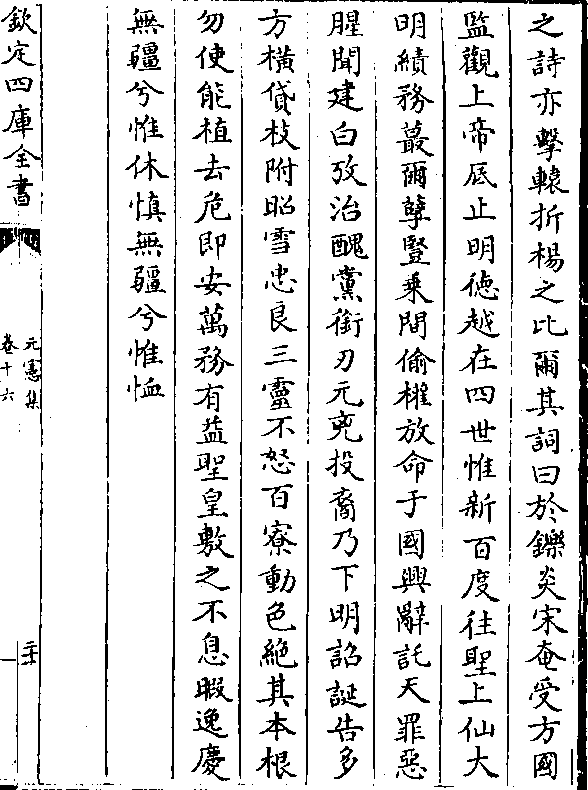 之詩亦擊轅折楊之比爾其詞曰於鑠炎宋奄受方國
監觀上帝底止明德越在四世惟新百度往聖上仙大
明績務蕞爾孽豎乗間偷權放命于國興辭託天罪惡
腥聞建白攷治醜黨銜刃元兇投裔乃下明詔誕告多
方横貸枝附昭雪忠良三靈不怒百寮動色絶其本根
勿使能植去危即安萬務有益聖皇敷之不息暇逸慶
無疆兮惟休慎無疆兮惟恤
欽定四庫全書
元憲集
卷十六
二十